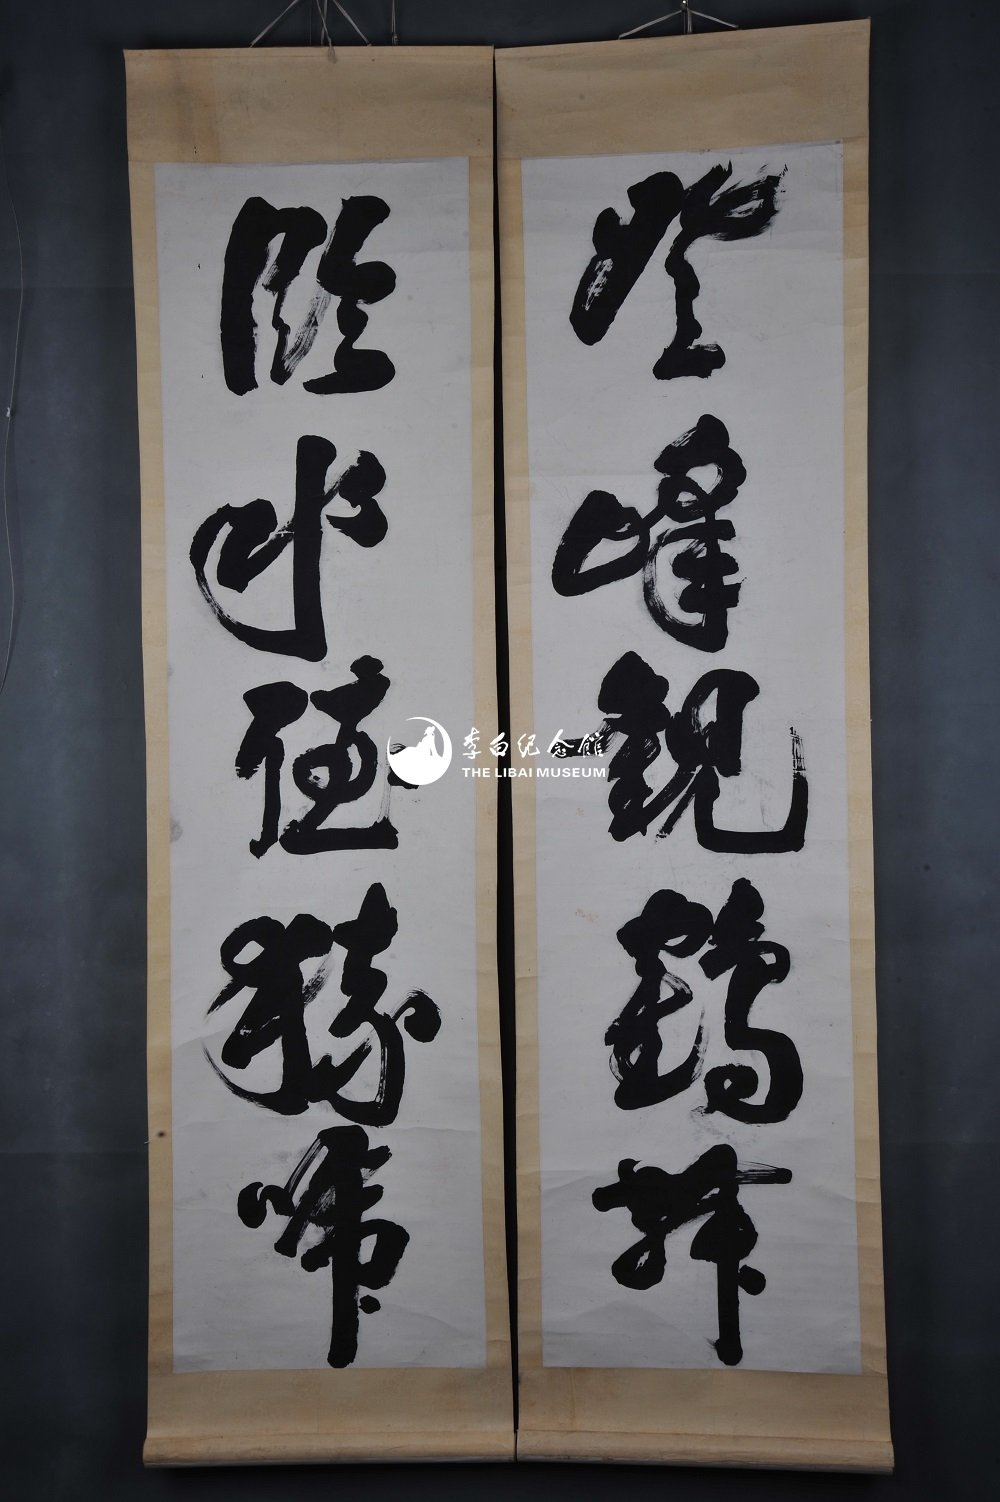 登峰觀鶴舞
臨水聽猿啼
李白纪念館
THE LIBAI MUSEUM